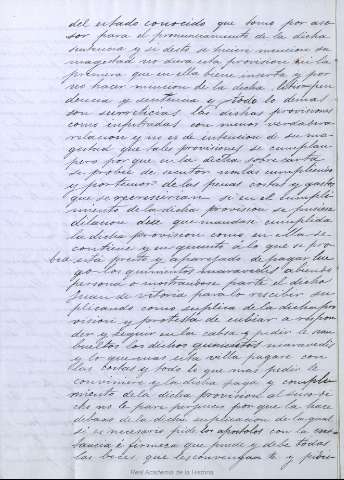 del estado conocido que tomo por ase-
sor para el pronunciamiento de la dicha
sentencia y si desto se hiciera mencion su
magestad no diera esta provision ni la
primera que en ella biene inserta y por
no hacer mencion de la dicha litispen
dencia y sentencia y todo lo demas
son surreticias las dichas provisiones
como impetradas con menor verdadera
relacion y no es de intencion de su ma-
gestad que tales provisiones se cumplan
pero por que en la dicha sobre carta
se probee de secutor no las cumpliendo
y por temor de las penas costas y gastos
que se recrescerian si en el cumpli-
miento de la dicha provision se pusiese
dilacion dixo que mandase cumplida
la dicha provision como en ella se
contiene y en quanto á lo que se pro-
bee esta presto y aparejado de pagar lue
go los quinientos maravedis abiendo
persona o mostrandose parte el dicho
Juan de vitoria para lo rescibir su-
plicando como suplica de la dicha pro
vision y protesta de enbiar a respon
der y seguir en la cabsa y pedir le sean
bueltos los dichos quinientos maravedis
y lo que mas esta villa pagare con
las costas y todo lo que mas pedir le
conviniere y la dicha paga y cumpli
miento de la dicha provision al suso di-
cho no le pare perjuicio por que la hace
debaxo de la dicha suplicacion de la qual
si es necesario pide los apostolos con la ins-
tancia é firmeca que puede y debe todas
las beces que les convengan te y pidie
Real Academia de la Historia